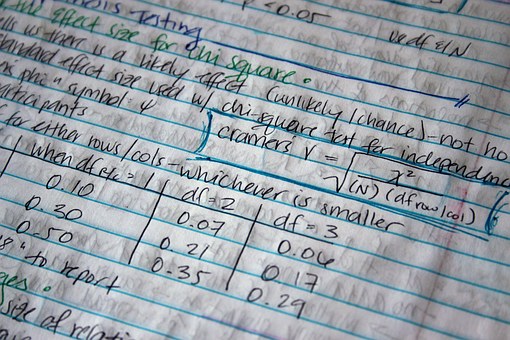 p < 0.05
w/ df & N
Testing
effect size for chi square.
us there is a likely effect (unlikely/chance) - not ho
standard effect size used w/ chi-square test for independenc
phi" symbol = φ
cramers V = √ χ² / (N)(df row/col)
participants
for either rows/cols - whichever is smaller
when df = 1 df = 2 df = 3
0.10 0.07 0.06
0.30 0.21 0.17
0.50 0.35 0.29
to report
size of relati